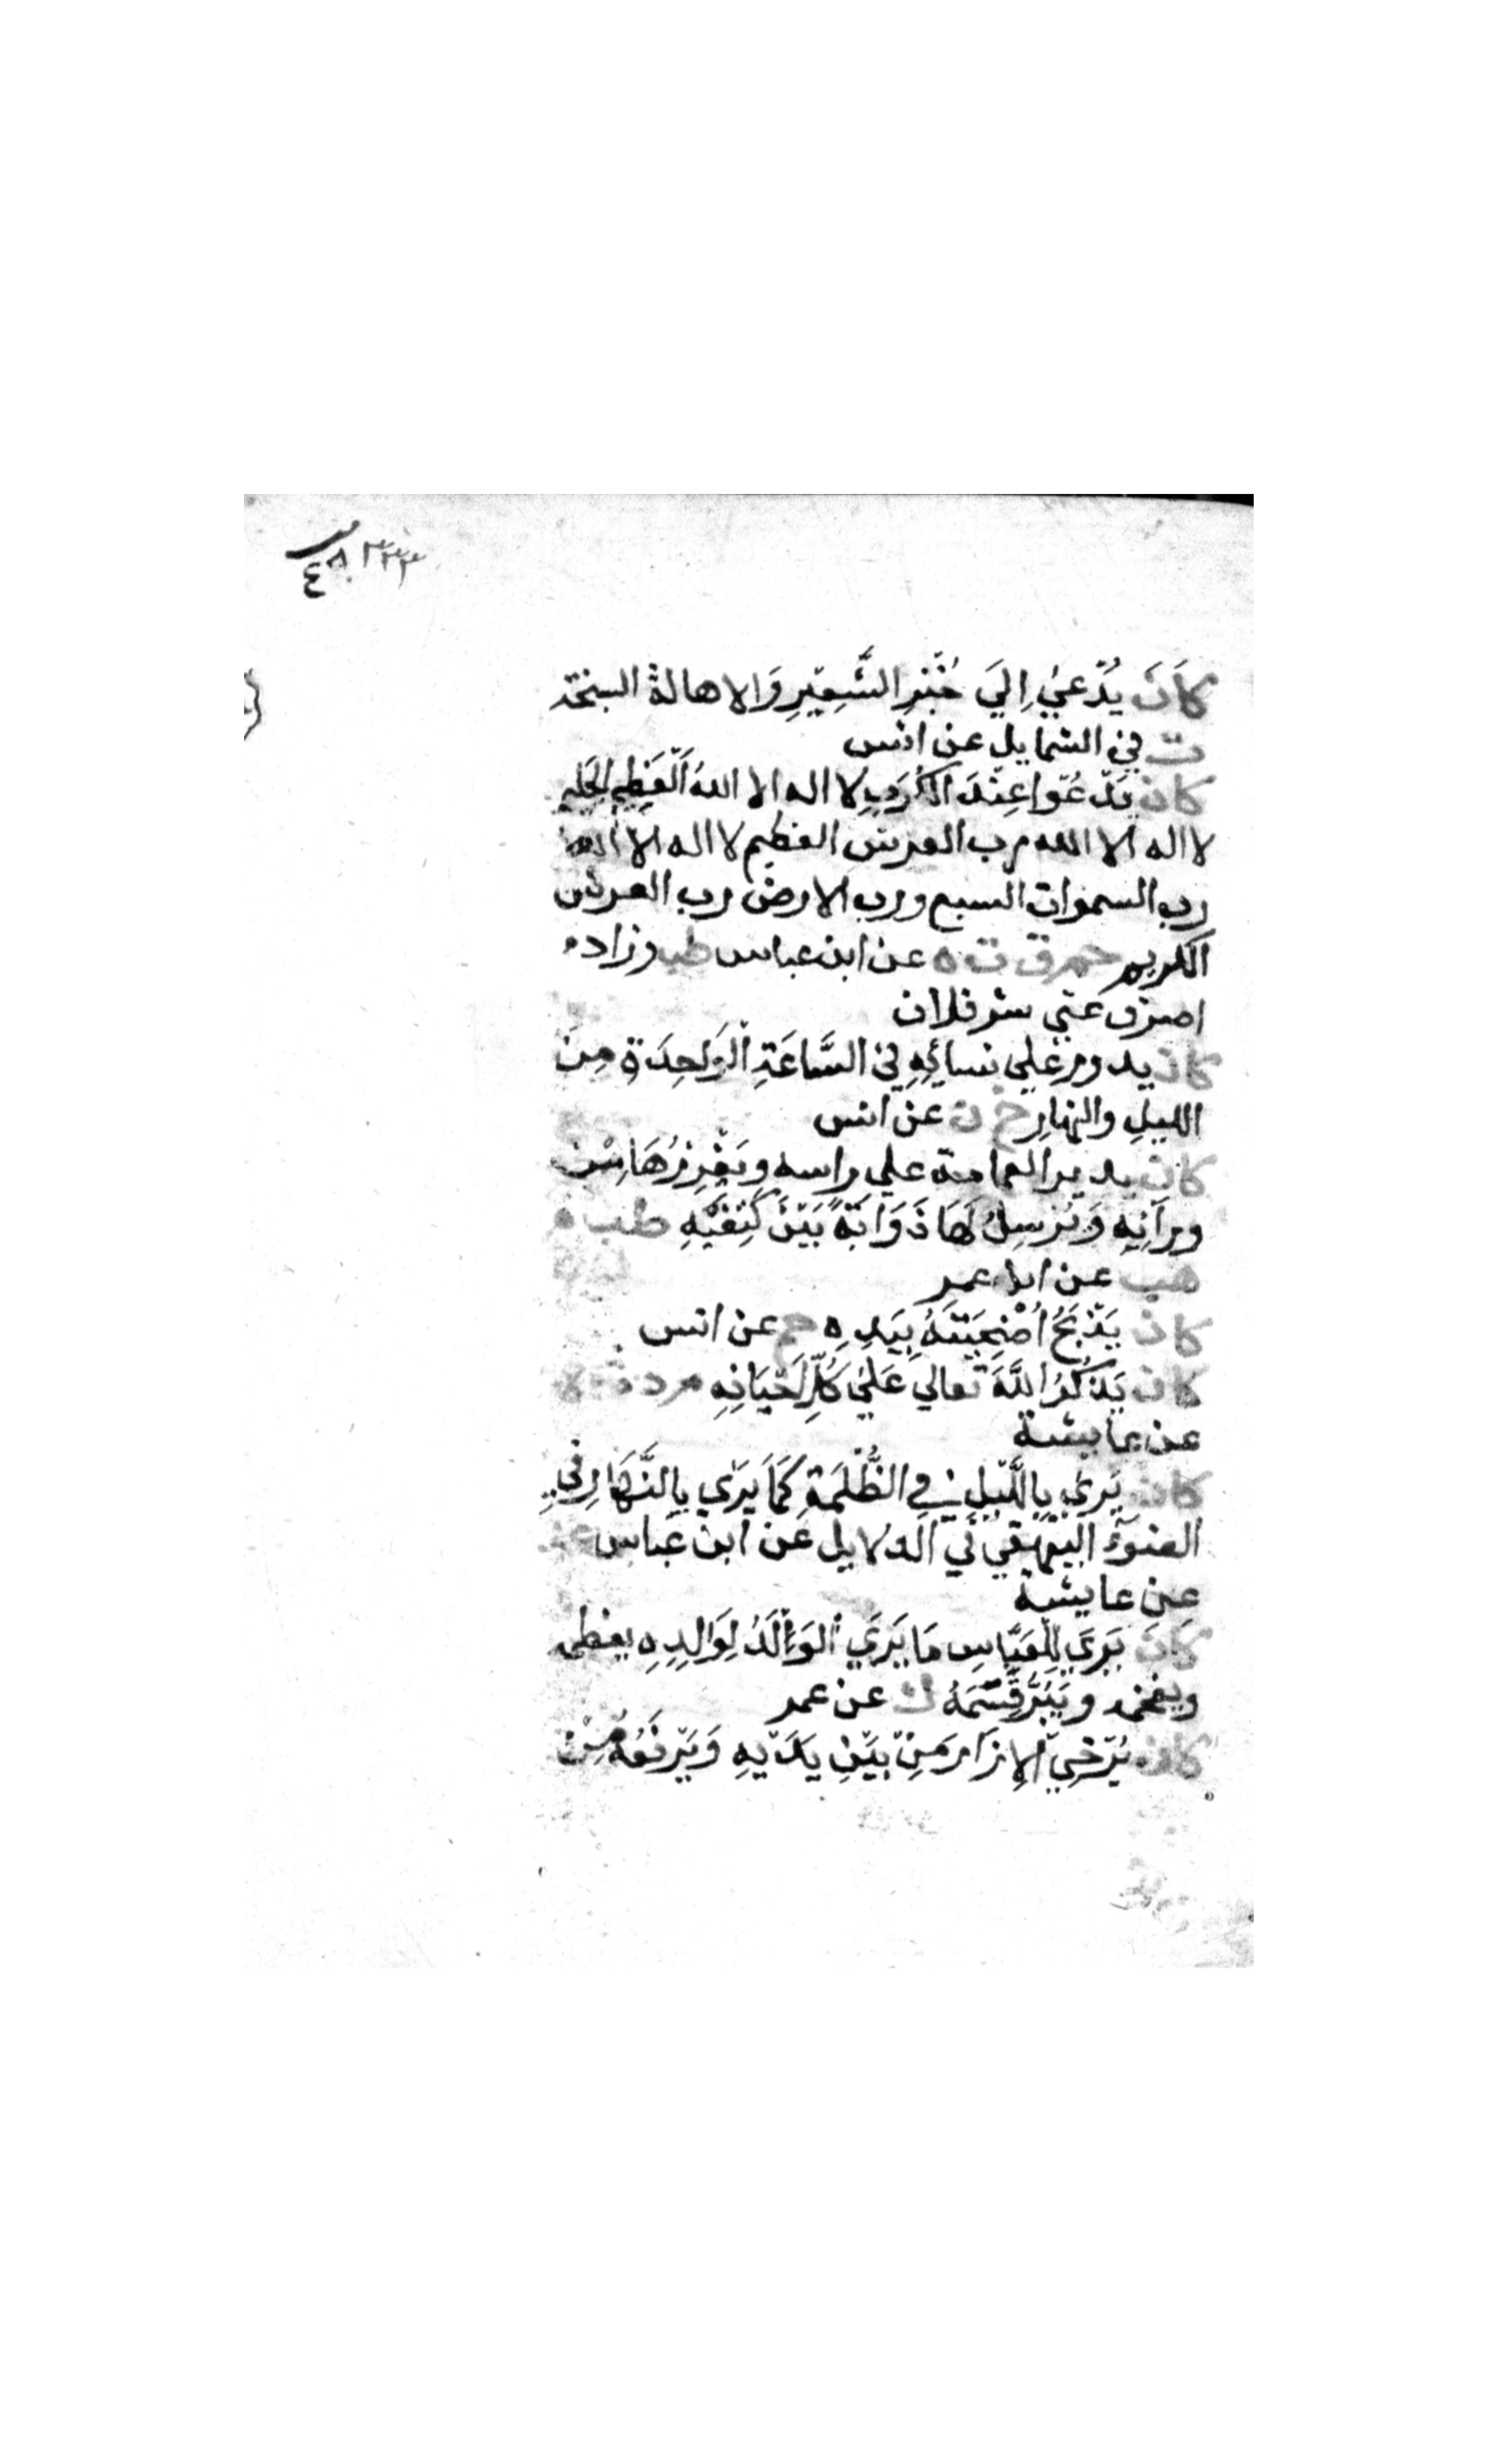 كَانَ يُدْعيٰ اِلَيَ خُبْزِ الشَّعِيْرِ وَالاهالةْ السنخة
ت في الشمايل عن انس
كان يَدْعُوا عِنْدَ الكُرَبِ لا اله الا اللهُ العَظِيم الحَلِيم
لا اله الا الله رب العرش العظيم لا اله الا الله
رب السموات السبع ورب الارض رب العرش
الكريم حم ق ت ه عن ابن عباس طب وزاد
اصرف عني شر فلان
كان يدور علي نسائِهِ في السَّاعَةِ الْوَاحِدَةِ مِنَ
الليلِ والنهارِ خ ن عن انس
كان يدير العمامة علي راسه وَيَغْرِزُهَا مِنْ
ورآئِهِ وَيُرْسِلُ لَهَا ذَوَابَةً بَيْنَ كَتِفَيْهِ طب
هب عن ابن عمر
كان يَذْبَحُ اُضْحِيَتَهُ بِيَدِهِ حم عن انس
كان يَذْكُرُ اللَّهَ تعالي عَليٰ كُلِّ اَحْيَانِهِ م د ت ه
عن عايشة
كان يَريٰ بِاللَّيْلِ فِي الظُّلْمَةِ كَمَا يَرٰي بِالنَّهَارِ فِي
الضوْءِ البَيْهَقيُّ في الدلايل عَن ابن عَباس عد
عن عايشة
كَانَ يَرَيَ لِلعَبَّاسِ مَا يَرَي الْوَلَدُ لِوَالِدِهِ يعظمه
ويفخمه وَيَبَرُّ قَسَمَهُ ك عن عمر
كان يُرْخِي الاِزَارَ مِنْ بَيْنِ يَدَيْهِ وَيَرْفَعُهُ مِنْ